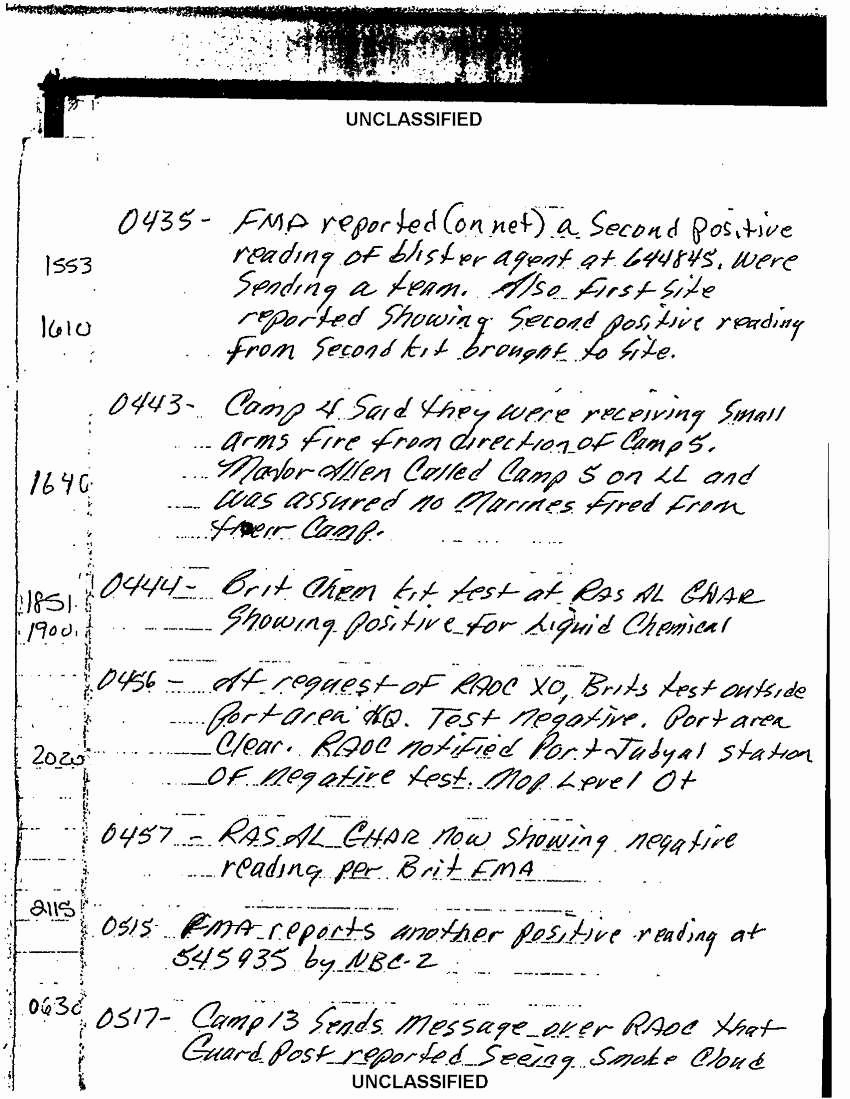 UNCLASSIFIED
0435- FMA reported (on net) a Second positive
1553 reading of blister agent at 644845. Were
Sending a team. Also first site
1610 reported Showing Second positive reading
from Second kit brought to site.
0443- Camp 4 Said they were receiving Small
arms fire from direction of Camp 5.
1640 Major Allen Called Camp 5 on LL and
was assured no Marines fired from
their Camp.
0444- Brit Chem kit test at RAS AL GHAR
1851
1900 Showing positive for Liquid Chemical
0456 - At request of RAOC XO, Brits test outside
Port area HQ. Test negative. Port area
2020 Clear. RAOC notified Port Jubyal station
of negative test. Mop Level 0+
0457 - RAS AL GHAR now showing negative
reading per Brit FMA
2115
0515 FMA reports another positive reading at
545935 by NBC-2
0630
0517- Camp 13 Sends message over RAOC that
Guard Post reported Seeing Smoke Cloud
UNCLASSIFIED